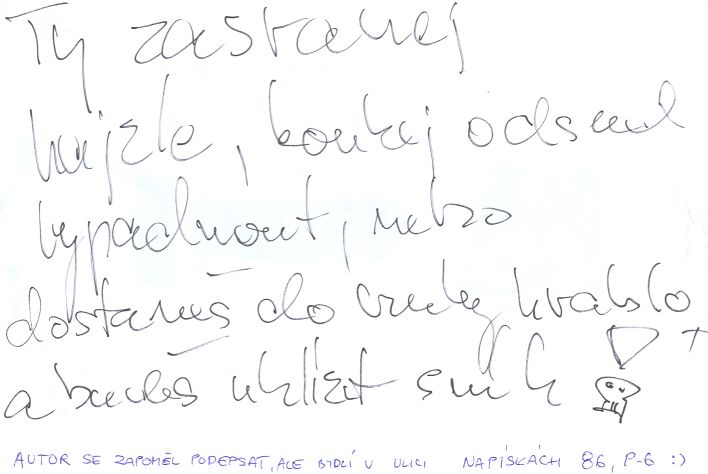 Ty zasranej
hajzle, koukej odsud
vypadnout, nebo
dostaneš do ruky hrablo
a budeš uklízet sníh
AUTOR SE ZAPOMĚL PODEPSAT, ALE BYDLÍ V ULICI NAPÍSKÁCH 86, P-6 :)